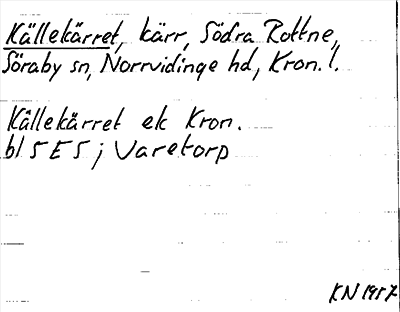 Källekärret, kärr, Södra Rottne,
Söraby sn, Norrvidinge hd, Kron. l.
Källekärret ek Kron.
bl 5 E 5 j Varetorp
KN 1957